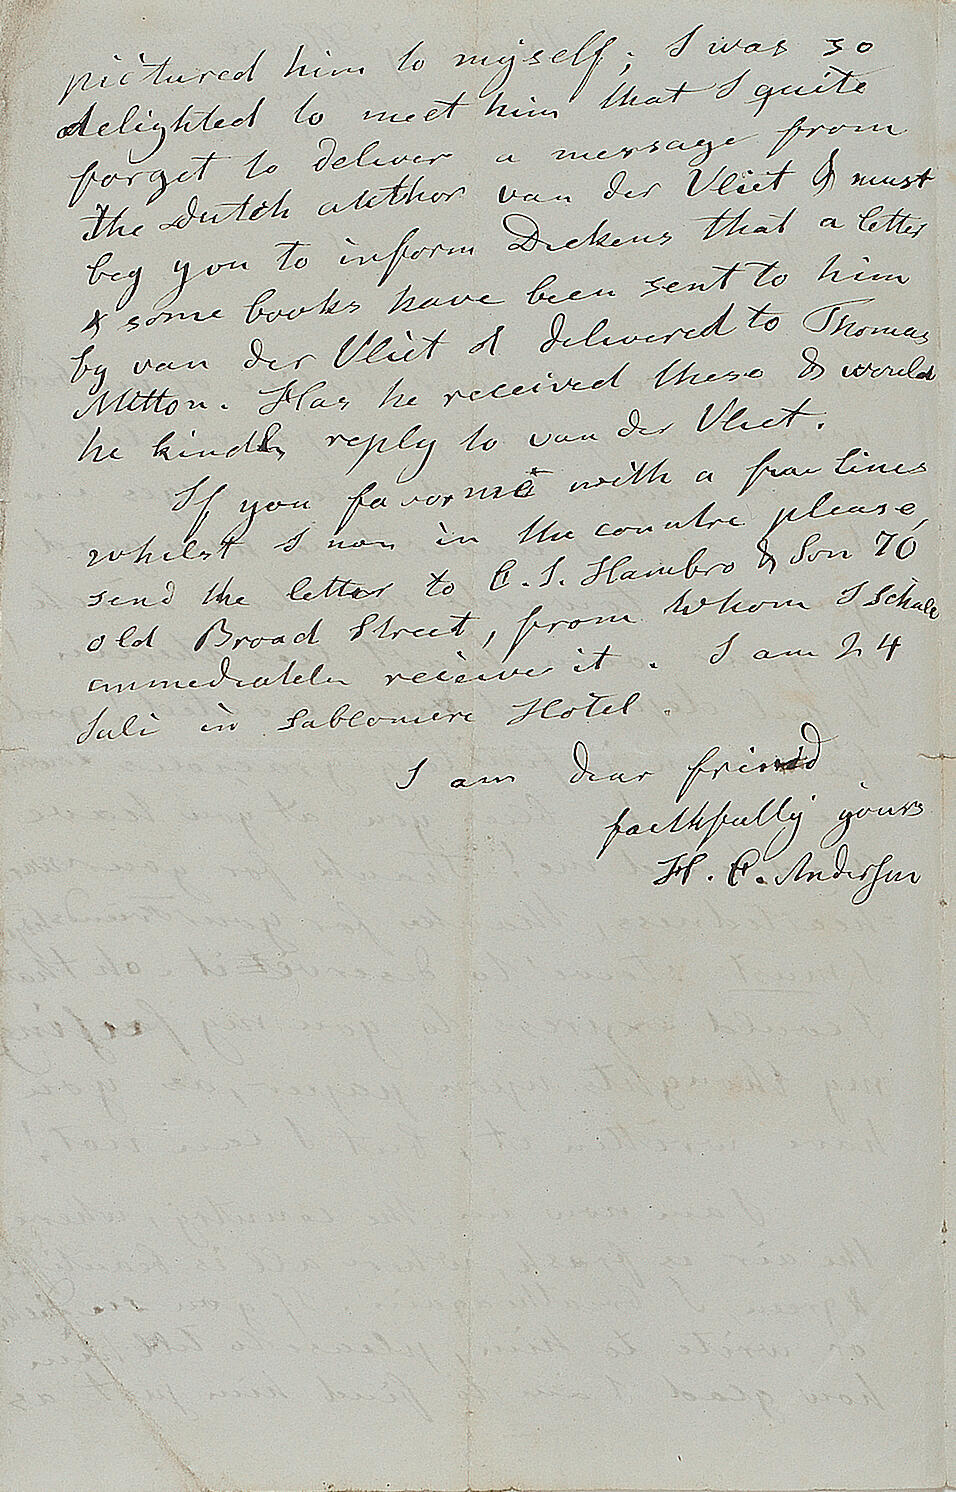 pictured him to myself; I was so
delighted to meet him that I quite
forget to deliver a message from
the Dutch author van der Vliet & must
beg you to inform Dickens that a letter
& some books have been sent to him
by van der Vliet & delivered to Thomas
Mitton. Has he received these & would
he kindly reply to van der Vliet.
If you favor me with a few lines
whilst I now in the countre please,
send the letter to C. J. Hambro & Son 70
old Broad Street, from whom I schale
immediateln receive it. I am 24
Juli in Sablonière Hôtel.
I am dear friend
faithfully yours
H. C. Andersen